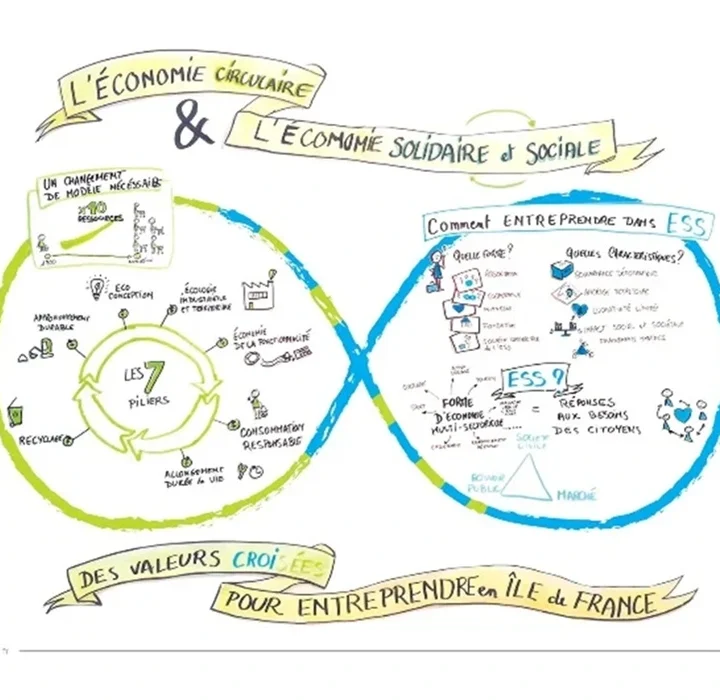 L'ÉCONOMIE CIRCULAIRE
&
L'ÉCOMOMIE SOLIDAIRE et SOCIALE
UN CHANGEMENT
DE MODÈLE NÉCESSAIRE
x10
RESSOURCES
ECO
CONCEPTION
ÉCOLOGIE
INDUSTRIELLE
ET TERRITORIALE
APPROVISIONNEMENT
DURABLE
ÉCONOMIE
DE LA FONCTIONNALITÉ
LES 7
PILIERS
RECYCLAGE
CONSOMMATION
RESPONSABLE
ALLONGEMENT
DURÉE de VIE
Comment ENTREPRENDRE DANS ESS
QUELLE FORME?
QUELLES CARACTÉRISTIQUES?
ASSOCIATION
FONDATION
GOUVERNANCE DÉMOCRATIQUE
LUCRATIVITÉ LIMITÉE
IMPACT SOCIAL et SOCIÉTAL
ESS ?
FORME
D'ÉCONOMIE
MULTI-SECTORIELLE
=
RÉPONSES
AUX BESOINS
DES CITOYENS
SOCIÉTÉ
CIVILE
POUVOIR
PUBLIC
MARCHÉ
DES VALEURS CROISÉES
POUR ENTREPRENDRE en ÎLE de FRANCE